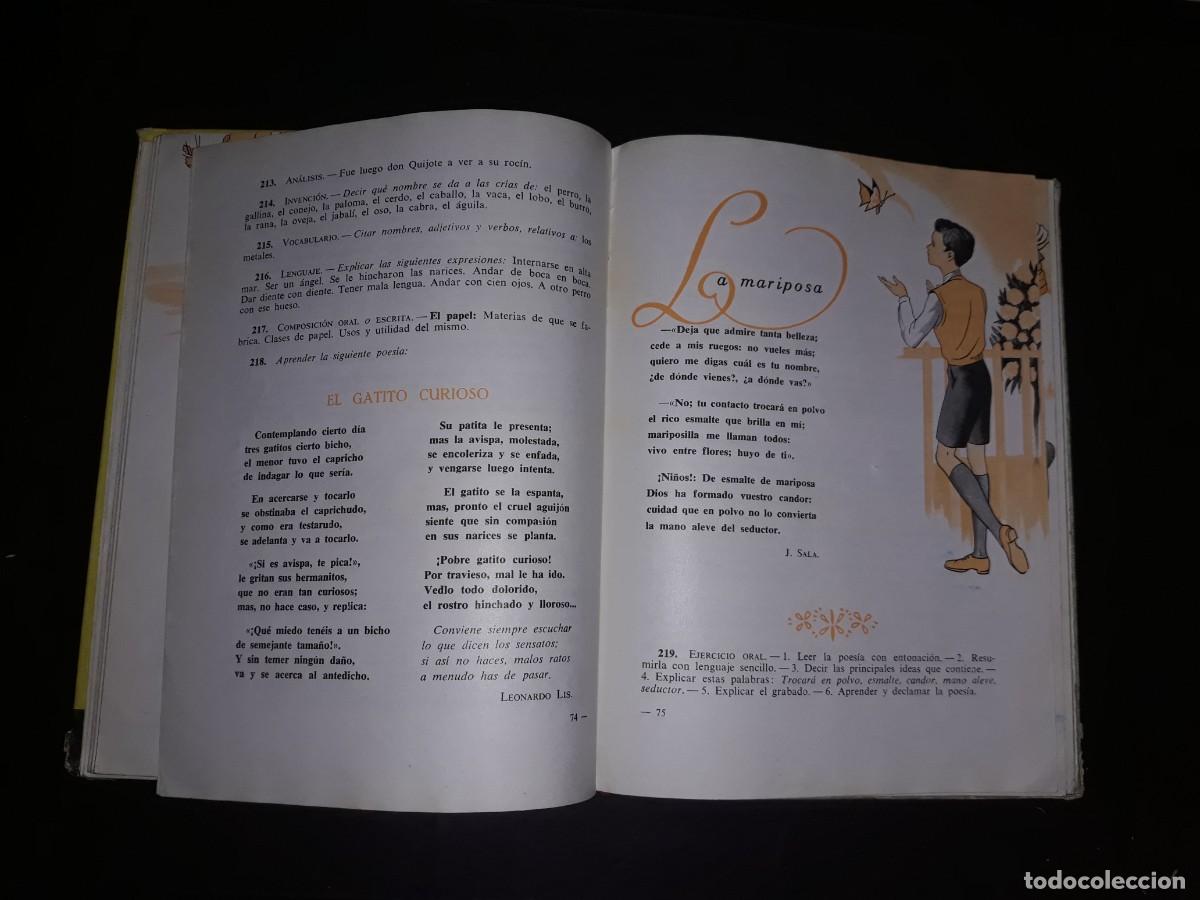 213. ANÁLISIS. — Fue luego don Quijote a ver a su rocín.
214. INVENCIÓN. — Decir qué nombre se da a las crías de: el perro, la
gallina, el conejo, la paloma, el cerdo, el caballo, la vaca, el lobo, el burro,
la rana, la oveja, el jabalí, el oso, la cabra, el águila.
215. VOCABULARIO. — Citar nombres, adjetivos y verbos, relativos a: los
metales.
216. LENGUAJE. — Explicar las siguientes expresiones: Internarse en alta
mar. Ser un ángel. Se le hincharon las narices. Andar de boca en boca.
Dar diente con diente. Tener mala lengua. Andar con cien ojos. A otro perro
con ese hueso.
217. COMPOSICIÓN ORAL o ESCRITA. — El papel: Materias de que se fa-
brica. Clases de papel. Usos y utilidad del mismo.
218. Aprender la siguiente poesía:
EL GATITO CURIOSO
Contemplando cierto día
tres gatitos cierto bicho,
el menor tuvo el capricho
de indagar lo que sería.
En acercarse y tocarlo
se obstinaba el caprichudo,
y como era testarudo,
se adelanta y va a tocarlo.
«¡Si es avispa, te pica!»,
le gritan sus hermanitos,
que no eran tan curiosos;
mas, no hace caso, y replica:
«¡Qué miedo tenéis a un bicho
de semejante tamaño!».
Y sin temer ningún daño,
va y se acerca al antedicho.
Su patita le presenta;
mas la avispa, molestada,
se encoleriza y se enfada,
y vengarse luego intenta.
El gatito se la espanta,
mas, pronto el cruel aguijón
siente que sin compasión
en sus narices se planta.
¡Pobre gatito curioso!
Por travieso, mal le ha ido.
Vedlo todo dolorido,
el rostro hinchado y lloroso...
Conviene siempre escuchar
lo que dicen los sensatos;
si así no haces, malos ratos
a menudo has de pasar.
LEONARDO LIS.
74 —
La mariposa
—«Deja que admire tanta belleza;
cede a mis ruegos: no vueles más;
quiero me digas cuál es tu nombre,
¿de dónde vienes?, ¿a dónde vas?»
—«No; tu contacto trocará en polvo
el rico esmalte que brilla en mí;
mariposilla me llaman todos:
vivo entre flores; huyo de ti».
¡Niños!: De esmalte de mariposa
Dios ha formado vuestro candor:
cuidad que en polvo no lo convierta
la mano aleve del seductor.
J. SALA.
219. EJERCICIO ORAL. — 1. Leer la poesía con entonación. — 2. Resu-
mirla con lenguaje sencillo. — 3. Decir las principales ideas que contiene. —
4. Explicar estas palabras: Trocará en polvo, esmalte, candor, mano aleve,
seductor. — 5. Explicar el grabado. — 6. Aprender y declamar la poesía.
— 75
todocoleccion